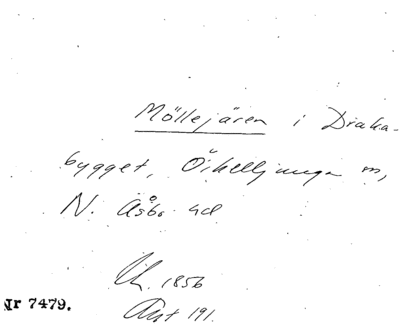 Möllejären i Draka-
bygget, Örkelljunga
N. Åsbo hd
1856
Nr 7479.
191.